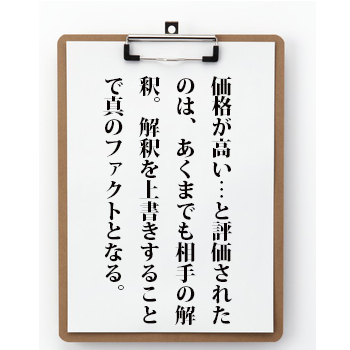 価格が高い…と評価された
のは、あくまでも相手の解
釈。解釈を上書きすること
で真のファクトとなる。